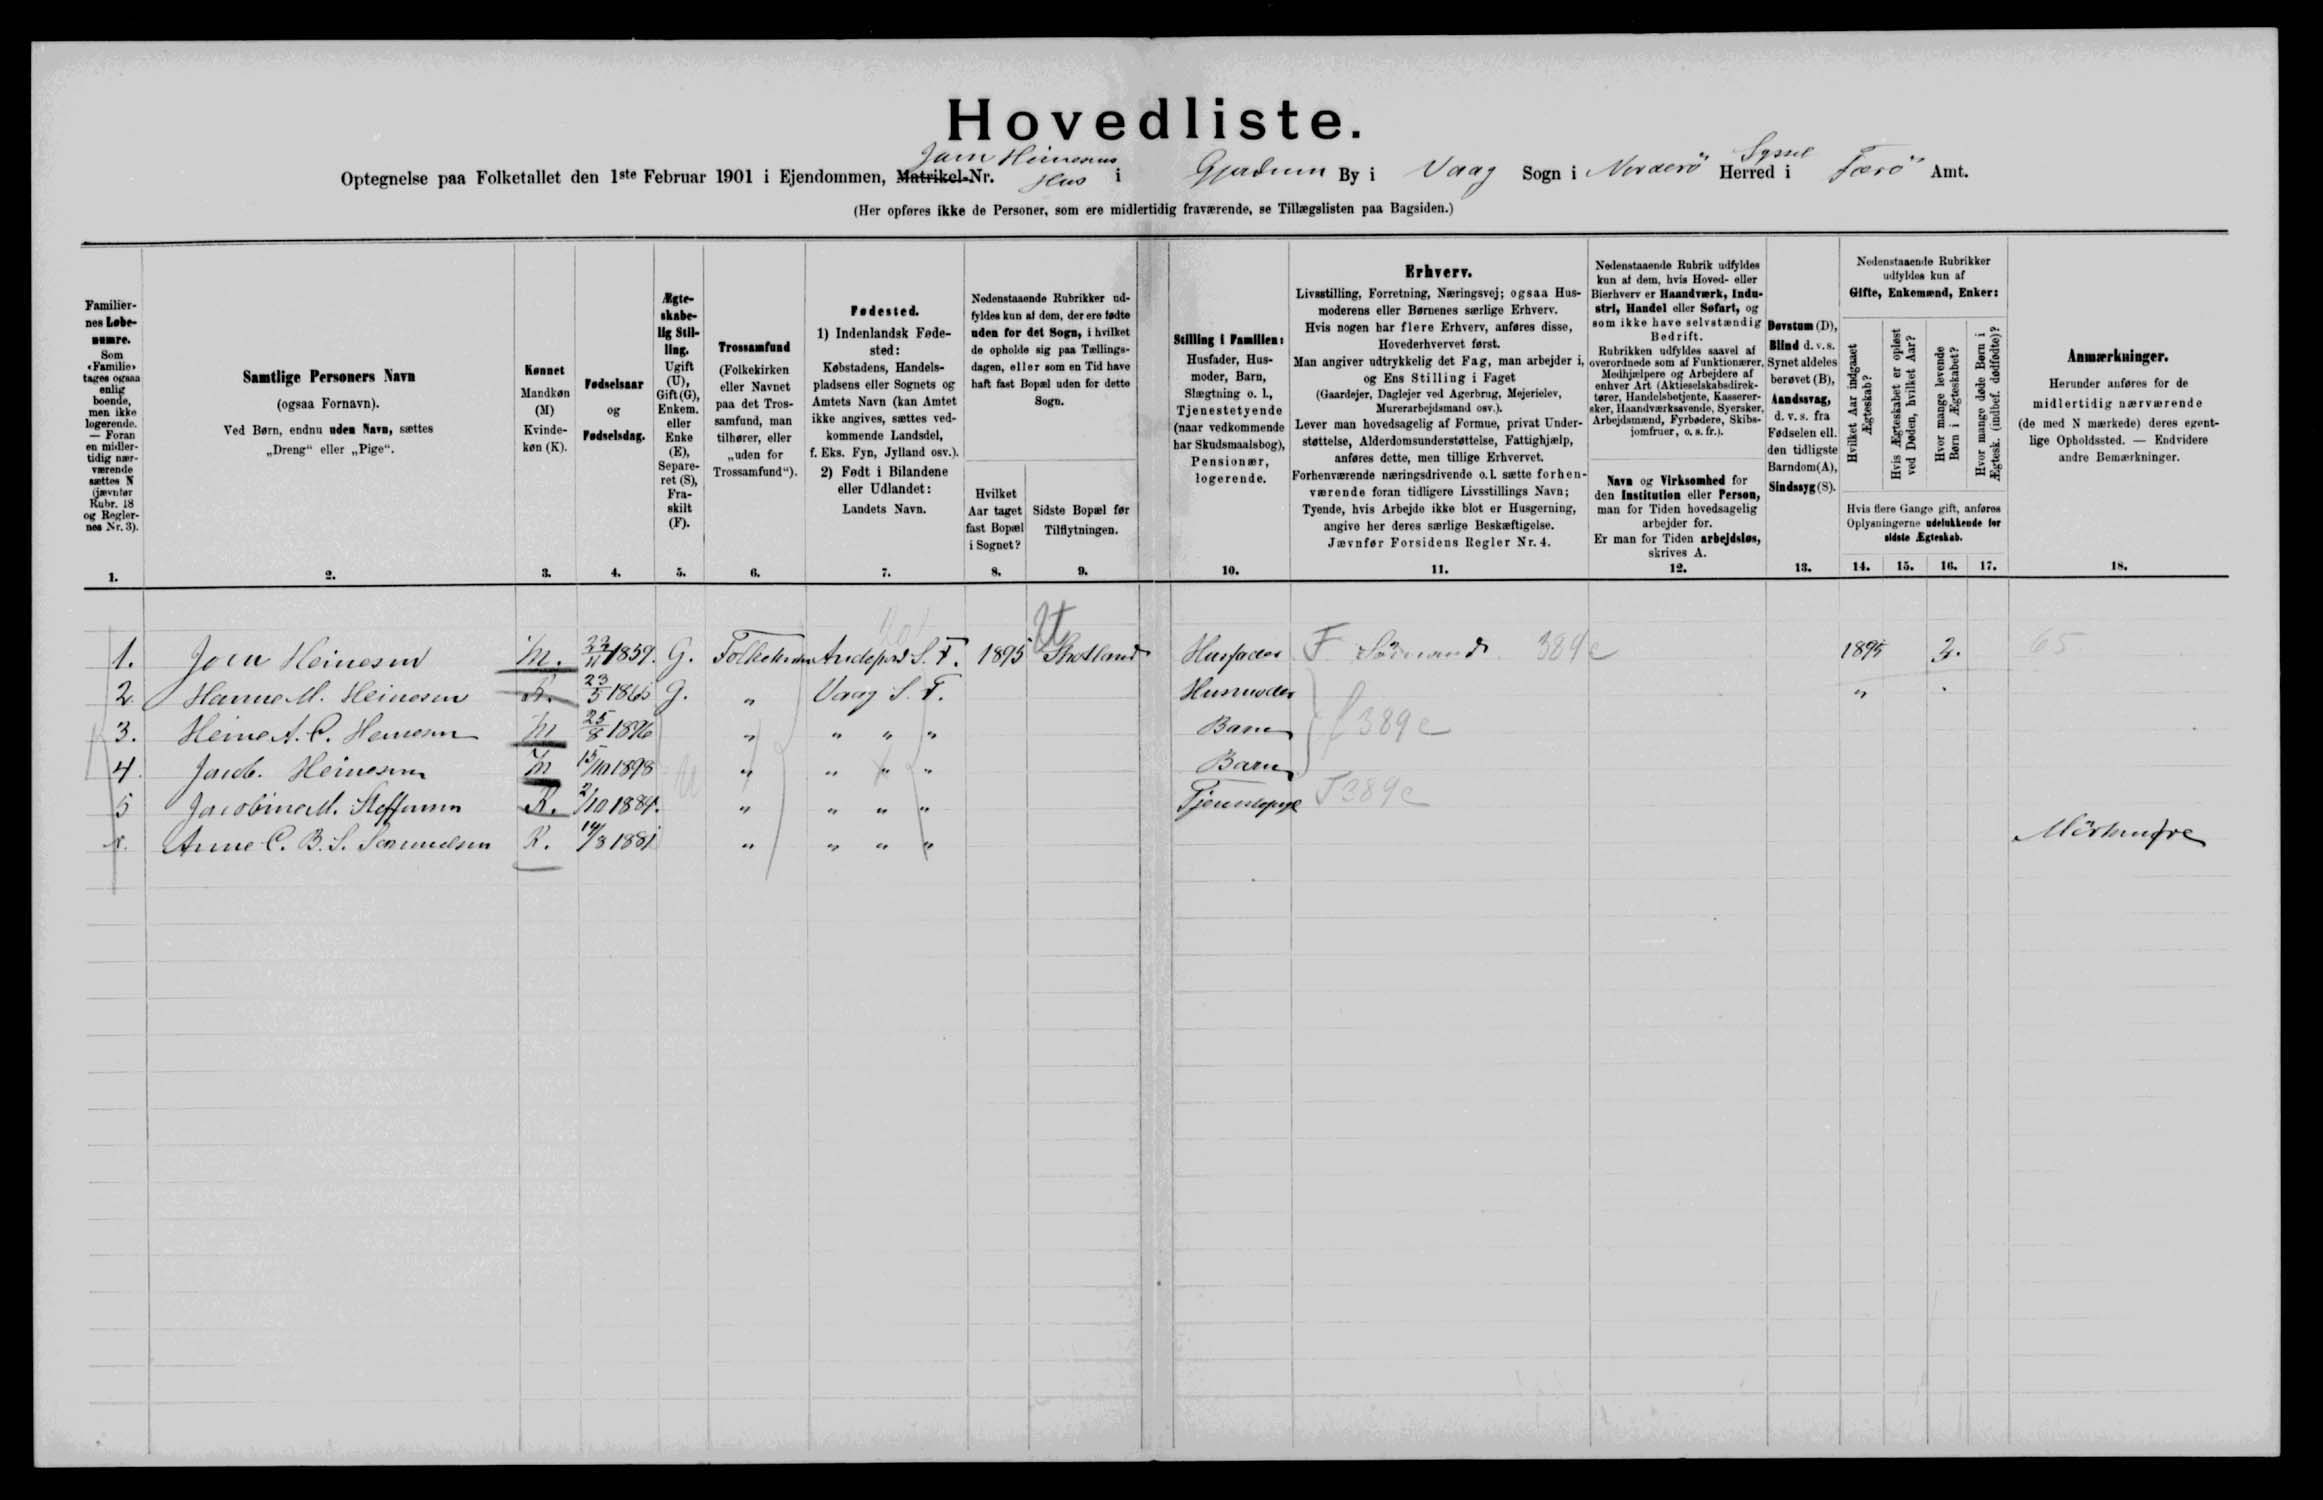 Hovedliste.
Optegnelse paa Folketallet den 1ste Februar 1901 i Ejendommen, Matrikel-Nr. Joen Heinesens Hus i By i Vaag Sogn i Norderö Herred Syssel i Færö Amt.
(Her opføres ikke de Personer, som ere midlertidig fraværende, se Tillægslisten paa Bagsiden.)
Familiernes Løbenumre. Som «Familie» tages ogsaa enlig boende, men ikke logerende. — Foran en midlertidig nærværende sættes N (jævnfør Rubr. 18 og Reglernes Nr. 3).
Samtlige Personers Navn (ogsaa Fornavn). Ved Børn, endnu uden Navn, sættes „Dreng“ eller „Pige“.
Kønnet Mandkøn (M) Kvindekøn (K).
Fødselsaar og Fødselsdag.
Ægteskabelig Stilling. Ugift (U), Gift (G), Enkem. eller Enke (E), Separeret (S), Fraskilt (F).
Trossamfund (Folkekirken eller Navnet paa det Trossamfund, man tilhører, eller „uden for Trossamfund“).
Fødested. 1) Indenlandsk Fødested: Købstadens, Handelspladsens eller Sognets og Amtets Navn (kan Amtet ikke angives, sættes vedkommende Landsdel, f. Eks. Fyn, Jylland osv.). 2) Født i Bilandene eller Udlandet: Landets Navn.
Nedenstaaende Rubrikker udfyldes kun af dem, der ere fødte uden for det Sogn, i hvilket de opholde sig paa Tællingsdagen, eller som en Tid have haft fast Bopæl uden for dette Sogn.
Hvilket Aar taget fast Bopæl i Sognet?
Sidste Bopæl før Tilflytningen.
Stilling i Familien: Husfader, Husmoder, Barn, Slægtning o. l., Tjenestetyende (naar vedkommende har Skudsmaalsbog), Pensionær, logerende.
Erhverv.
Livsstilling, Forretning, Næringsvej; ogsaa Husmoderens eller Børnenes særlige Erhverv.
Hvis nogen har flere Erhverv, anføres disse, Hovederhvervet først.
Man angiver udtrykkelig det Fag, man arbejder i, og Ens Stilling i Faget
(Gaardejer, Daglejer ved Agerbrug, Mejerielev, Murerarbejdsmand osv.).
Lever man hovedsagelig af Formue, privat Understøttelse, Alderdomsunderstøttelse, Fattighjælp, anføres dette, men tillige Erhvervet.
Forhenværende næringsdrivende o. l. sætte forhenværende foran tidligere Livsstillings Navn; Tyende, hvis Arbejde ikke blot er Husgerning, angive her deres særlige Beskæftigelse.
Jævnfør Forsidens Regler Nr. 4.
Nedenstaaende Rubrik udfyldes kun af dem, hvis Hoved- eller Bierhverv er Haandværk, Industri, Handel eller Søfart, og som ikke have selvstændig Bedrift.
Rubrikken udfyldes saavel af overordnede som af Funktionærer, Medhjælpere og Arbejdere af enhver Art (Aktieselskabsdirektører, Handelsbetjente, Kasserersker, Haandværkssvende, Syersker, Arbejdsmænd, Fyrbødere, Skibsjomfruer, o. s. fr.).
Navn og Virksomhed for den Institution eller Person, man for Tiden hovedsagelig arbejder for.
Er man for Tiden arbejdsløs, skrives A.
Døvstum (D), Blind d. v. s. Synet aldeles berøvet (B), Aandssvag, d. v. s. fra Fødselen ell. den tidligste Barndom (A), Sindssyg (S).
Nedenstaaende Rubrikker udfyldes kun af Gifte, Enkemænd, Enker:
Hvilket Aar indgaaet Ægteskab?
Hvis Ægteskabet er opløst ved Døden, hvilket Aar?
Hvor mange levende Børn i Ægteskabet?
Hvor mange døde Børn i Ægtesk. (indbef. dødfødte)?
Hvis flere Gange gift, anføres Oplysningerne udelukkende for sidste Ægteskab.
Anmærkninger.
Herunder anføres for de midlertidig nærværende (de med N mærkede) deres egentlige Opholdssted. — Endvidere andre Bemærkninger.
1. 2. 3. 4. 5. 6. 7. 8. 9. 10. 11. 12. 13. 14. 15. 16. 17. 18.
1. Joen Heinesen M. 22/11 1859. G. Folkekirken S. F. 1895 Husfader F Sömand 389c 1895 2. 65
2 Hanne M. Heinesen K. 23/5 1865 G. " Vaag S. F. Husmoder "
3. Heine A. C. Heinesen M 25/8 1896 " " " " Barn f 389c
4. Jacob. Heinesen M 15/10 1898 " " " " Barn
5 Jacobine M. Steffensen K. 2/10 1884. " " " " Tjenestepige T 389c
Anne C. B. S. Samuelsen K. 14/8 1881 " " " "